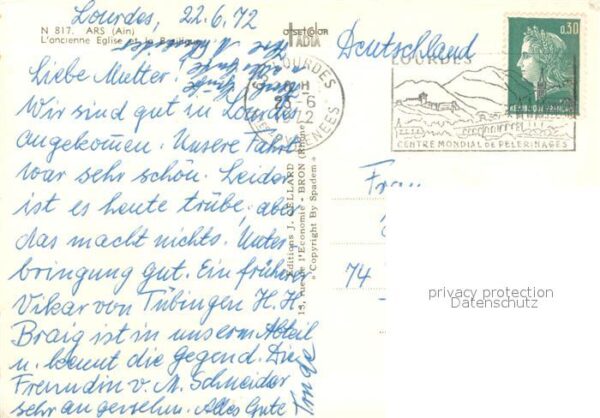 Lourdes, 22.6.72
N 817. ARS (Ain)
L'ancienne Eglise et la Basilique
OFSETCOLOR
Deutschland
Liebe Mutter.
Wir sind gut in Lourdes
angekommen. Unsere Fahrt
war sehr schön. Leider
ist es heute trübe, aber
das macht nichts. Unter-
bringung gut. Ein früherer
Vikar von Tübingen H. H.
Braig ist in unserm Abteil
u. kennt die Gegend. Die
Freundin v. M. Schneider
sehr angesehen. Alles Gute
LOURDES
1972
PYRENEES
LOURDES
CENTRE MONDIAL DE PELERINAGES
0,30
Editions J. CELLARD
15, rue de l'Economie - BRON (Rhône)
« Copyright By Spadem »
74
privacy protection
Datenschutz